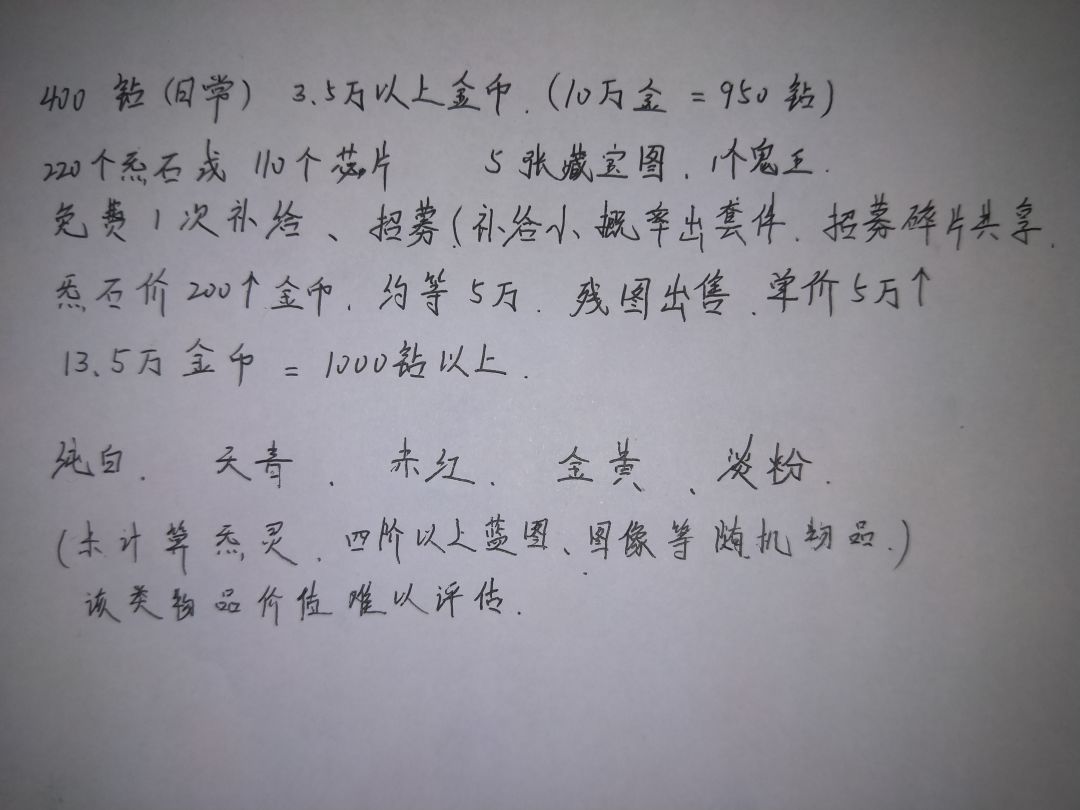 400钻(日常) 3.5万以上金币.(10万金=950钻)
220个炁石或110个芯片 5张藏宝图、1个鬼王.
免费1次补给、招募(补给小概率出套件.招募碎片共享.
炁石价200↑金币.约等5万.残图出售.单价5万↑
13.5万金币=1000钻以上.
纯白. 天青. 赤红. 金黄、淡粉.
(未计算炁灵.四阶以上蓝图、图像等随机物品.)
该类物品价值难以评估.